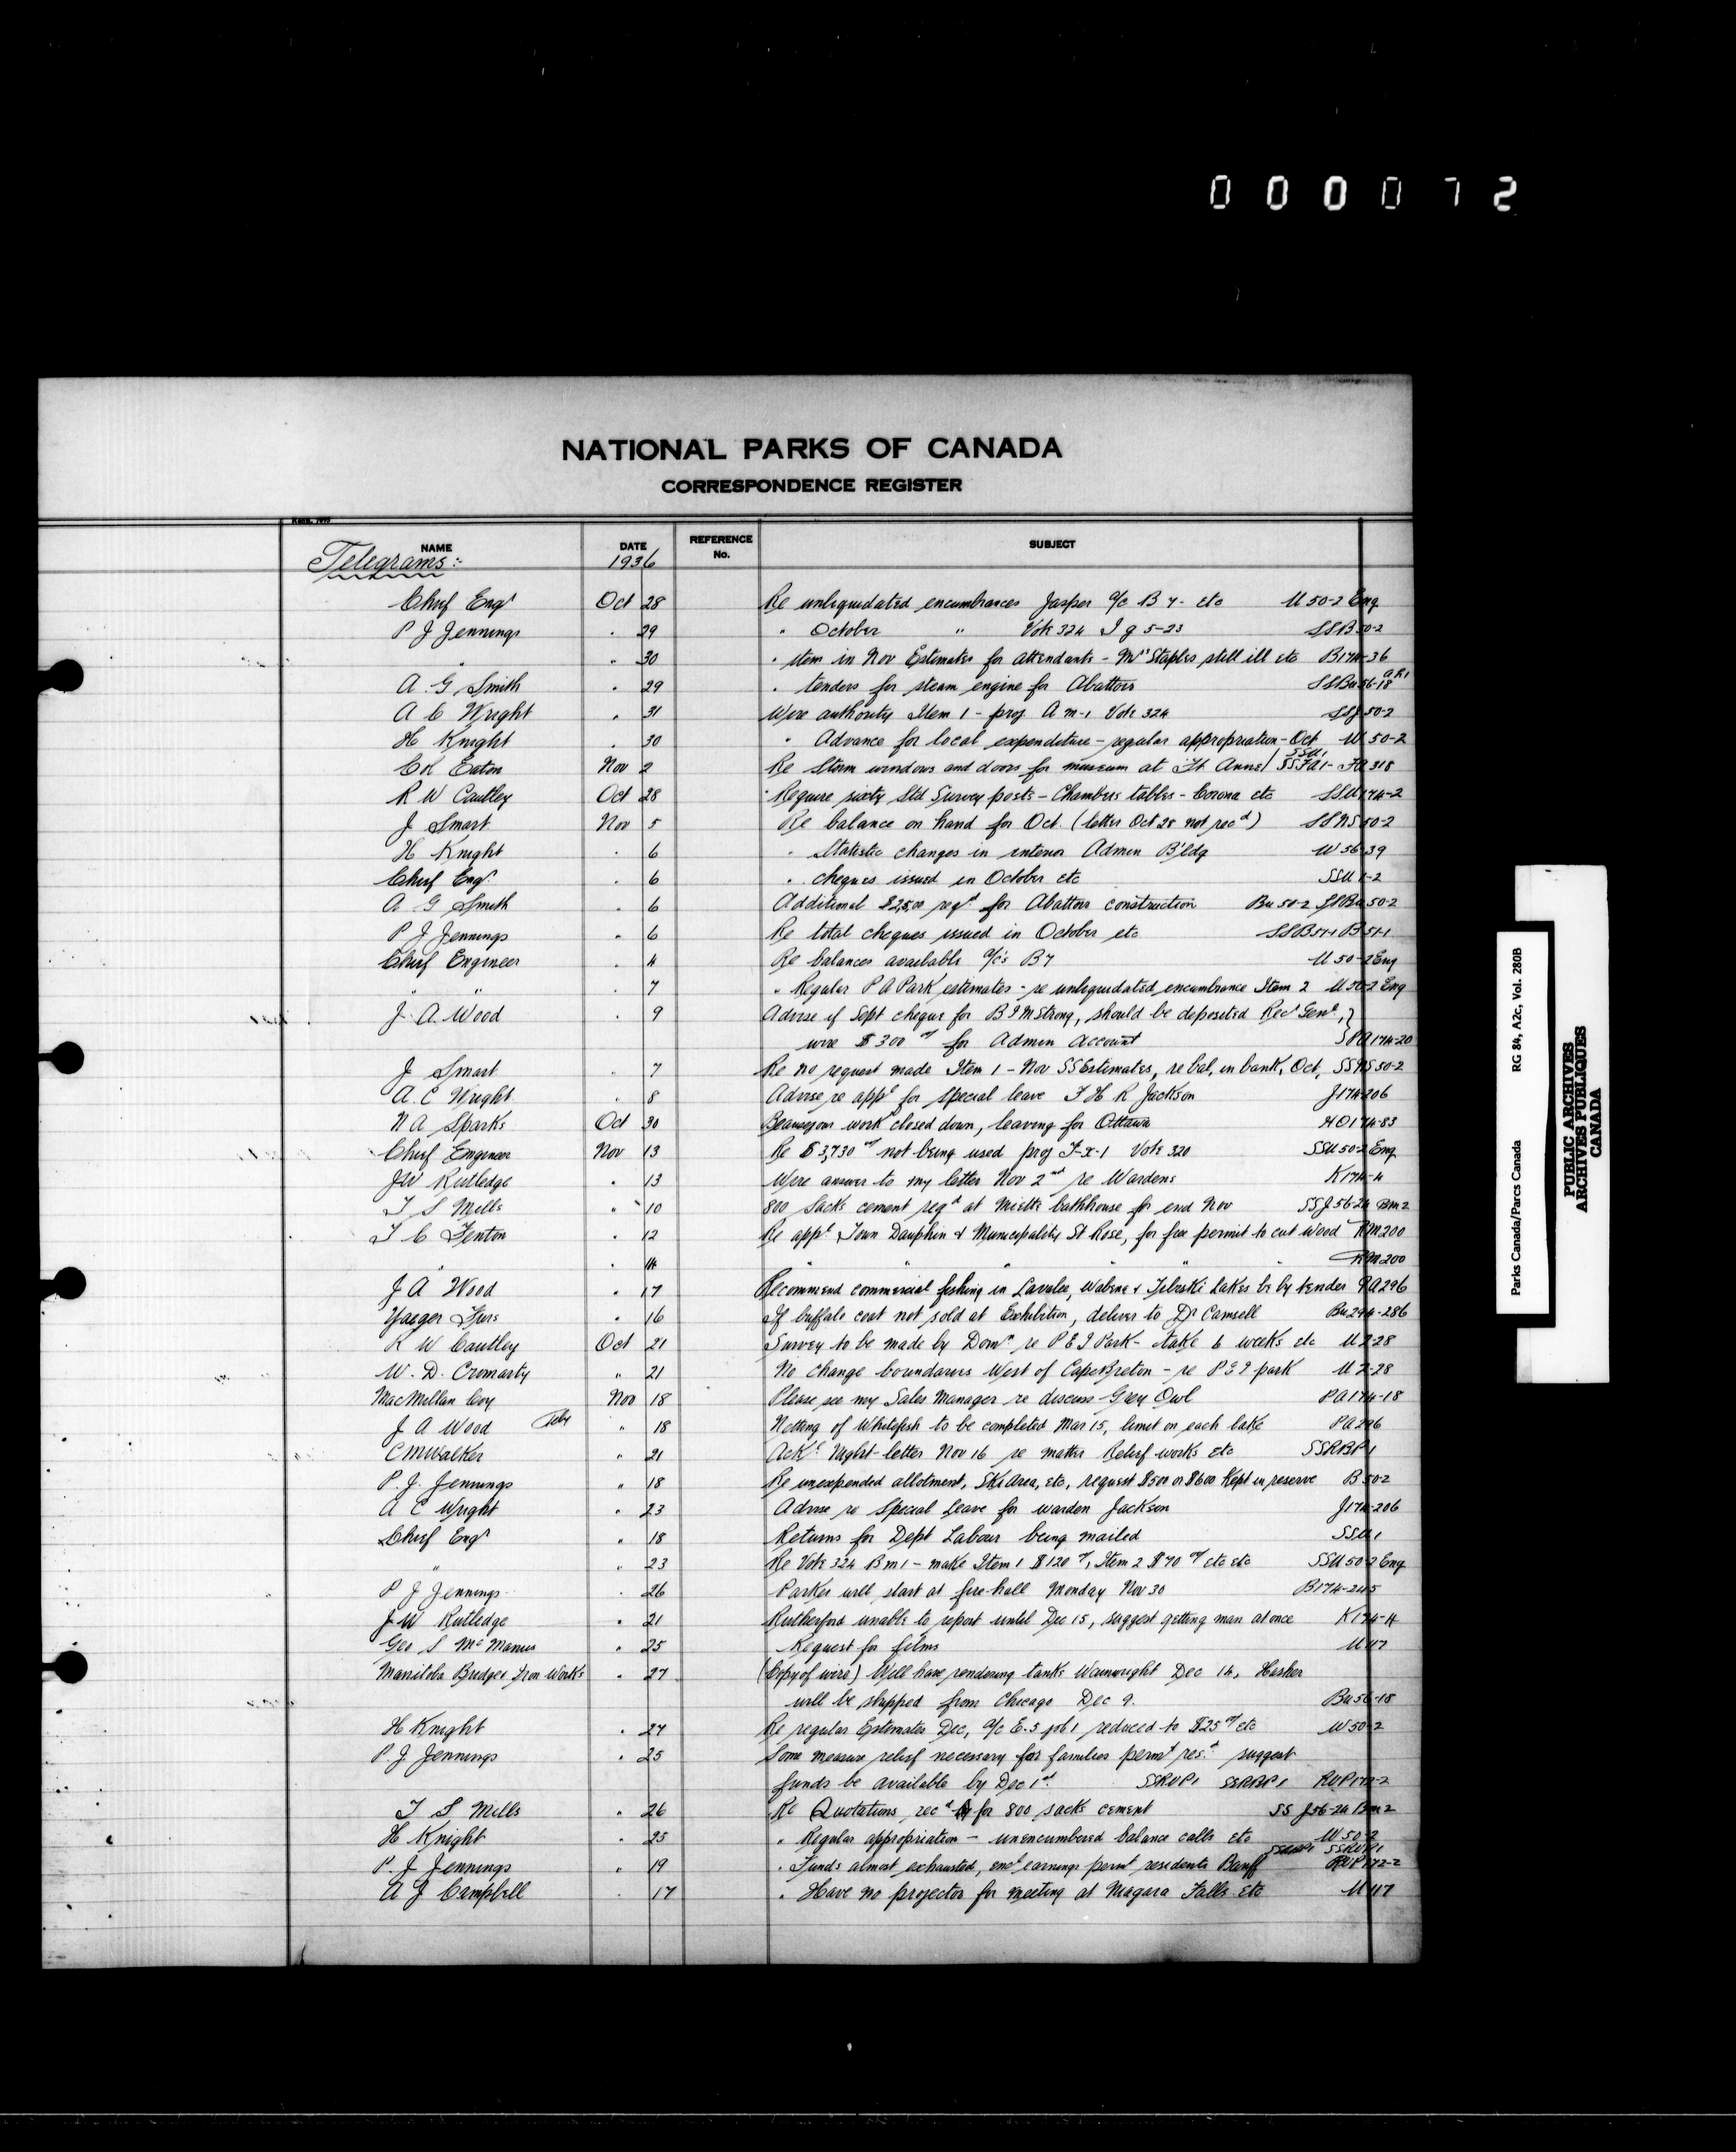 000072
NATIONAL PARKS OF CANADA
CORRESPONDENCE REGISTER
NAME DATE REFERENCE No. SUBJECT
Telegrams:- 1936
Chief Engr Oct 28 Re unliquidated encumbrances Jasper a/c B 7 - etc U 50-2 Eng
P J Jennings " 29 " October " Vote 324 I g 5-23 SSB 50-2
" " 30 " item in Nov Estimates for attendants - Mrs Staples still ill etc B174-36
A G Smith " 29 " tenders for steam engine for Abattoir SSBu 56-18
A C Wright " 31 Wire authority Item 1 - proj A m-1 Vote 324 SSJ 50-2
H Knight " 30 " Advance for local expenditure - regular appropriation - Oct W 50-2
Eaton Nov 2 Re Storm windows and doors for museum at Ft Anne SSU1 SSFA1- FA 318
R W Cautley Oct 28 Require sixty Std Survey posts - Chambers tables - Corona etc SSU174-2
J Smart Nov 5 Re balance on hand for Oct. (letter Oct 28 not recd) SSNS 50-2
H Knight " 6 " Statistic changes in interior Admin B'ldg W 56-39
Chief Engr " 6 " cheques issued in October etc SSU 1-2
A G Smith " 6 Additional reqd for Abattoir construction Bu 50-2 SSBu 50-2
P J Jennings " 6 Re total cheques issued in October etc SSB 51-1 B 51-1
Chief Engineer " 4 Re balances available a/c's B7 U 50-2 Eng
" " " 7 " Regular P A Park estimates - re unliquidated encumbrance Item 2 U 50-2 Eng
J A Wood " 9 Advise if Sept cheque for B I M Strong, should be deposited Recr Genl,}
wire $300 00 for Admin Account SPA 174-20
J Smart " 7 Re no request made Item 1 - Nov SS Estimates, re bal. in bank, Oct, SSNS 50-2
A. C Wright " 8 Advise re appn for special leave F H R Jackson J174-206
N A Sparks Oct 30 Beausejour work closed down, leaving for Ottawa HO174-83
Chief Engineer Nov 13 Re $3,730 00 not being used proj F-x-1 Vote 320 SSU 50-2 Eng
JW Rutledge " 13 Wire answer to my letter Nov 2nd re Wardens K174-4
T S Mills " 10 800 Sacks cement reqd at Miette bathhouse for end Nov SSJ 56-24 Bm 2
T C Fenton " 12 Re appn Town Dauphin & Municipality St Rose, for free permit to cut wood RM200
" " 14 " " " " RM200
J A Wood " 17 Recommend commercial fishing in Lavalee, Wabeno & Lakes be by tender PA296
Yaeger Furs " 16 If buffalo coat not sold at Exhibition, deliver to Dr Camsell Bu 294-286
R W Cautley Oct 21 Survey to be made by Domn re P E I Park - take 6 weeks etc U 2-28
W. D. Cromarty " 21 No change boundaries West of Cape Breton - re P E I park U 2-28
MacMillan Coy Nov 18 Please see my Sales Manager re discuss Grey Owl PA174-18
J A Wood " 18 Netting of Whitefish to be completed Mar 15, limit on each lake PA 296
C M Walker " 21 Ackg Night-letter Nov 16 re matter Relief works etc SSRBP1
P. J. Jennings " 18 Re unexpended allotment, Ski area, etc, request $500 or $600 kept in reserve B 50-2
A C Wright " 23 Advise re Special Leave for warden Jackson J174-206
Chief Engr " 18 Returns for Dept Labour being mailed SSU1
" " 23 Re Vote 324 B m 1 - make Item 1 $120 00, Item 2 $70 00 etc etc SSU 50-2 Eng
P J Jennings " 26 Parker will start at fire-hall Monday Nov 30 B174-245
J W Rutledge " 21 Rutherford unable to report until Dec 15, suggest getting man at once K174-4
Geo S McManus " 25 Request for films U 117
Manitoba Bridge & Iron Works " 27 (Copy of wire) Will have rendering tanks Wainwright Dec 16, Hasher
will be shipped from Chicago Dec 9. Bu 56-18
H Knight " 27 Re regular Estimates Dec, a/c E-5 job 1 reduced to $25 00 etc W 50-2
P. J. Jennings " 25 Some measure relief necessary for families permt rest suggest
funds be available by Dec 1st SSRVP1 SSRBP1 RVP172-2
T S Mills " 26 Re Quotations recd for 800 sacks cement SS J56-24 Bm 2
H Knight " 25 " Regular appropriation - unencumbered balance calls etc W 50-2
P. J Jennings " 19 " Funds almost exhausted, earnings permt residents Banff SSRBP1 SSRVP1 RVP172-2
A J Campbell " 17 " Have no projector for meeting at Niagara Falls etc U 117
Parks Canada/Parcs Canada RG 84, A2c, Vol. 280B
PUBLIC ARCHIVES
ARCHIVES PUBLIQUES
CANADA